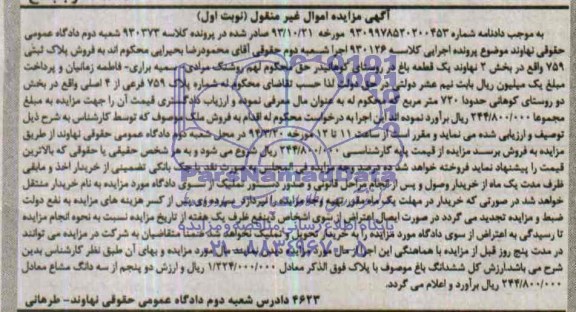 آگهی مزایده اموال غیر منقول (نوبت اول)
به موجب دادنامه شماره ۹۳۰۹۹۷۸۵۲۰۲۰۰۴۵۳ مورخه ۹۳/۱۰/۲۱ صادر شده در پرونده کلاسه ۹۳۰۳۷۳ شعبه دوم دادگاه عمومی
حقوقی نهاوند موضوع پرونده اجرایی کلاسه ۹۳۰۱۲۶ اجرا شعبه دوم حقوقی آقای محمودرضا بحیرایی محکوم اند به فروش پلاک ثبتی
۷۵۹ واقع در بخش ۲ نهاوند یک قطعه باغ در روستای کوهانی در حق محکوم لهم روشنک مرادی - سمیه براری - فاطمه زمانیان و پرداخت
مبلغ یک میلیون ریال بابت نیم عشر دولتی در حق دولت لذا حسب تقاضای محکوم له شماره پلاک ۷۵۹ فرعی از ۴ اصلی واقع در بخش
دو روستای کوهانی حدودا ۷۲۰ متر مربع که محکوم له به عنوان مال معرفی نموده و ارزیاب دادگستری قیمت آن را جهت مزایده به مبلغ
مجموعا ۲۴۴/۸۰۰/۰۰۰ ریال برآورد نموده اند این اجرا به درخواست محکوم له اقدام به فروش ملک موصوف که توسط کارشناس به شرح ذیل
توصیف و ارزیابی شده می نماید و مقرر است از ساعت ۱۱ تا ۱۲ مورخه ۹۴/۳/۲۰ در محل شعبه دوم دادگاه عمومی حقوقی نهاوند از طریق
مزایده به فروش برسد مزایده از قیمت پایه کارشناسی ۲۴۴/۸۰۰/۰۰۰ ریال شروع می شود و به هر شخص حقیقی یا حقوقی که بالاترین
قیمت را پیشنهاد نماید فروخته خواهد شد ده درصد بهای مزایده فی المجلس به صورت نقد یا چک بانکی تضمینی از خریدار اخذ و مابقی
ظرف مدت یک ماه از خریدار وصول و پس از انجام مراحل قانونی و صدور دستور تملیک از سوی دادگاه مورد مزایده به نام خریدار منتقل
خواهد شد در صورتی که خریدار در مهلت یک ماه مقرر بقیه وجه مزایده را نپردازد سپرده وی پس از کسر هزینه های مزایده به نفع دولت
ضبط و مزایده تجدید می گردد در صورت ایصال اعتراض از سوی اشخاص ذینفع ظرف یک هفته از تاریخ مزایده نسبت به نحوه انجام مزایده
تا رسیدگی به اعتراض از سوی دادگاه مورد مزایده را به خریدار تحویل و تملیک نخواهد شد ضمنا متقاضیان به شرکت در مزایده می توانند
در مدت پنج روز قبل از مزایده با هماهنگی این اجرا از مال مورد مزایده دیدن نمایند مال مورد مزایده و بهای آن طبق نظر کارشناس بدین
شرح می باشد: ارزش کل ششدانگ باغ موصوف با پلاک فوق الذکر معادل ۱/۲۲۴/۰۰۰/۰۰۰ ریال و ارزش دو پنجم از سه دانگ مشاع معادل
۲۴۴/۸۰۰/۰۰۰ ریال برآورد و اعلام می گردد.
۴۶۲۳ دادرس شعبه دوم دادگاه عمومی حقوقی نهاوند- طرهانی
ParsNamadData
پایگاه اطلاع رسانی مناقصه و مزایده
۰۲۱-۸۸۳۴۹۶۷۰-۵